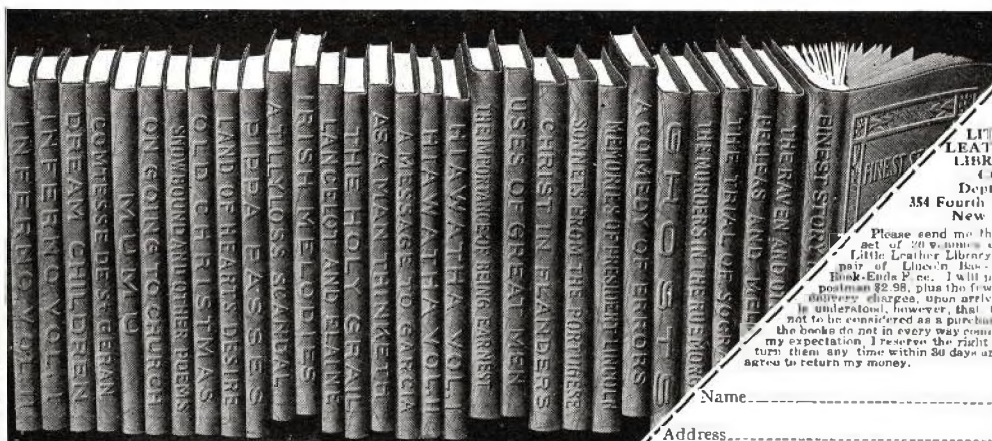 INFERNO, VOL. II
INFERNO, VOL. I
DREAM CHILDREN
COMTESSE DE ST. GERAN
MUMU
ON GOING TO CHURCH
SNOWBOUND AND OTHER POEMS
OLD CHRISTMAS
LAND OF HEART'S DESIRE
PIPPA PASSES
A TILLYLOSS SCANDAL
IRISH MELODIES
LANCELOT AND ELAINE
THE HOLY GRAIL
AS A MAN THINKETH
A MESSAGE TO GARCIA
HIAWATHA VOL. II
HIAWATHA VOL. I
THE IMPORTANCE OF BEING EARNEST
USES OF GREAT MEN
CHRIST IN FLANDERS
SONNETS FROM THE PORTUGUESE
MEMORIES OF PRESIDENT LINCOLN
A COMEDY OF ERRORS
GHOSTS
THE MURDERS IN THE RUE MORGUE
THE TRIAL OF SOCR
PELLEAS AND MEL
THE RAVEN AND
FINEST STORY
FINEST STO
LIT
LEAT
LIBR
C
Dept
354 Fourth
New
Please send me th
set of 30 volumes o
Little Leather Library
pair of Lincoln Bas-
Book-Ends Free. I will p
postman $2.98, plus the few
delivery charges, upon arriv
is understood, however, that
not to be considered as a purchas
the books do not in every way come
my expectation, I reserve the right
turn them any time within 30 days an
agree to return my money.
Name
Address